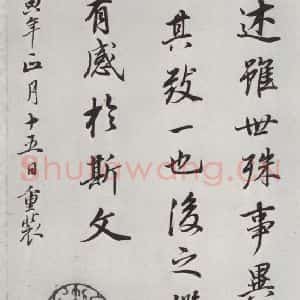 述雖世殊事異
其致一也後之攬
有感於斯文
寅年正月十五日重裝
Shufawang.cn